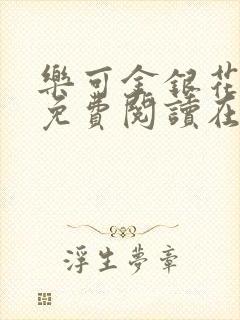 樂可金銀花
免費閱讀在
浮生夢章